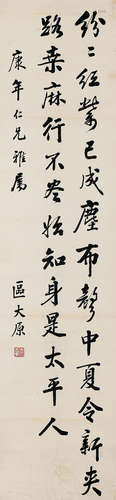 紛二红紫已成塵布聲中夏令新夹
路桒麻行不尽始知身是太平人
康年仁兄雅屬
區大原